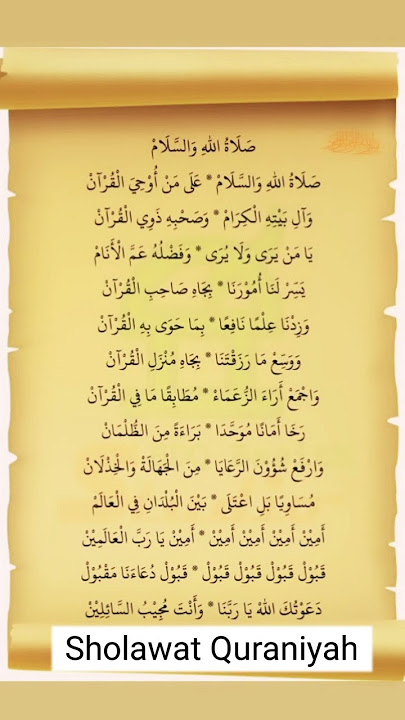 صَلَاةُ اللهِ وَالسَّلَامْ
صَلَاةُ اللهِ وَالسَّلَامْ * عَلَى مَنْ أُوْحِيَ الْقُرْآنْ
وَآلِ بَيْتِهِ الْكِرَامْ * وَصَحْبِهِ ذَوِي الْقُرْآنْ
يَا مَنْ يَرَى وَلَا يُرَى * وَفَضْلُهُ عَمَّ الْأَنَامْ
يَسِّرْ لَنَا أُمُوْرَنَا * بِجَاهِ صَاحِبِ الْقُرْآنْ
وَزِدْنَا عِلْمًا نَافِعًا * بِمَا حَوَى بِهِ الْقُرْآنْ
وَوَسِّعْ مَا رَزَقْتَنَا * بِجَاهِ مُنْزَلِ الْقُرْآنْ
وَاجْمَعْ أَرَاءَ الزُّعَمَاءْ * مُطَابِقًا مَا فِي الْقُرْآنْ
رَخَا أَمَانًا مُوَحَّدَا * بَرَاءَةً مِنَ الظُّلْمَانْ
وَارْفَعْ شُؤُوْنَ الرَّعَايَا * مِنَ الْجَهَالَةْ وَالْخِذْلَانْ
مُسَاوِيًا بَلِ اعْتَلَى * بَيْنَ الْبُلْدَانِ فِي الْعَالَمْ
أَمِيْنْ أَمِيْنْ أَمِيْنْ أَمِيْنْ * أَمِيْنْ يَا رَبَّ الْعَالَمِيْنْ
قَبُوْلْ قَبُوْلْ قَبُوْلْ قَبُوْلْ * قَبُوْلْ دُعَاءَنَا مَقْبُوْلْ
دَعَوْتُكَ اللهُ يَا رَبَّنَا * وَأَنْتَ مُجِيْبُ السَّائِلِيْنْ
Sholawat Quraniyah